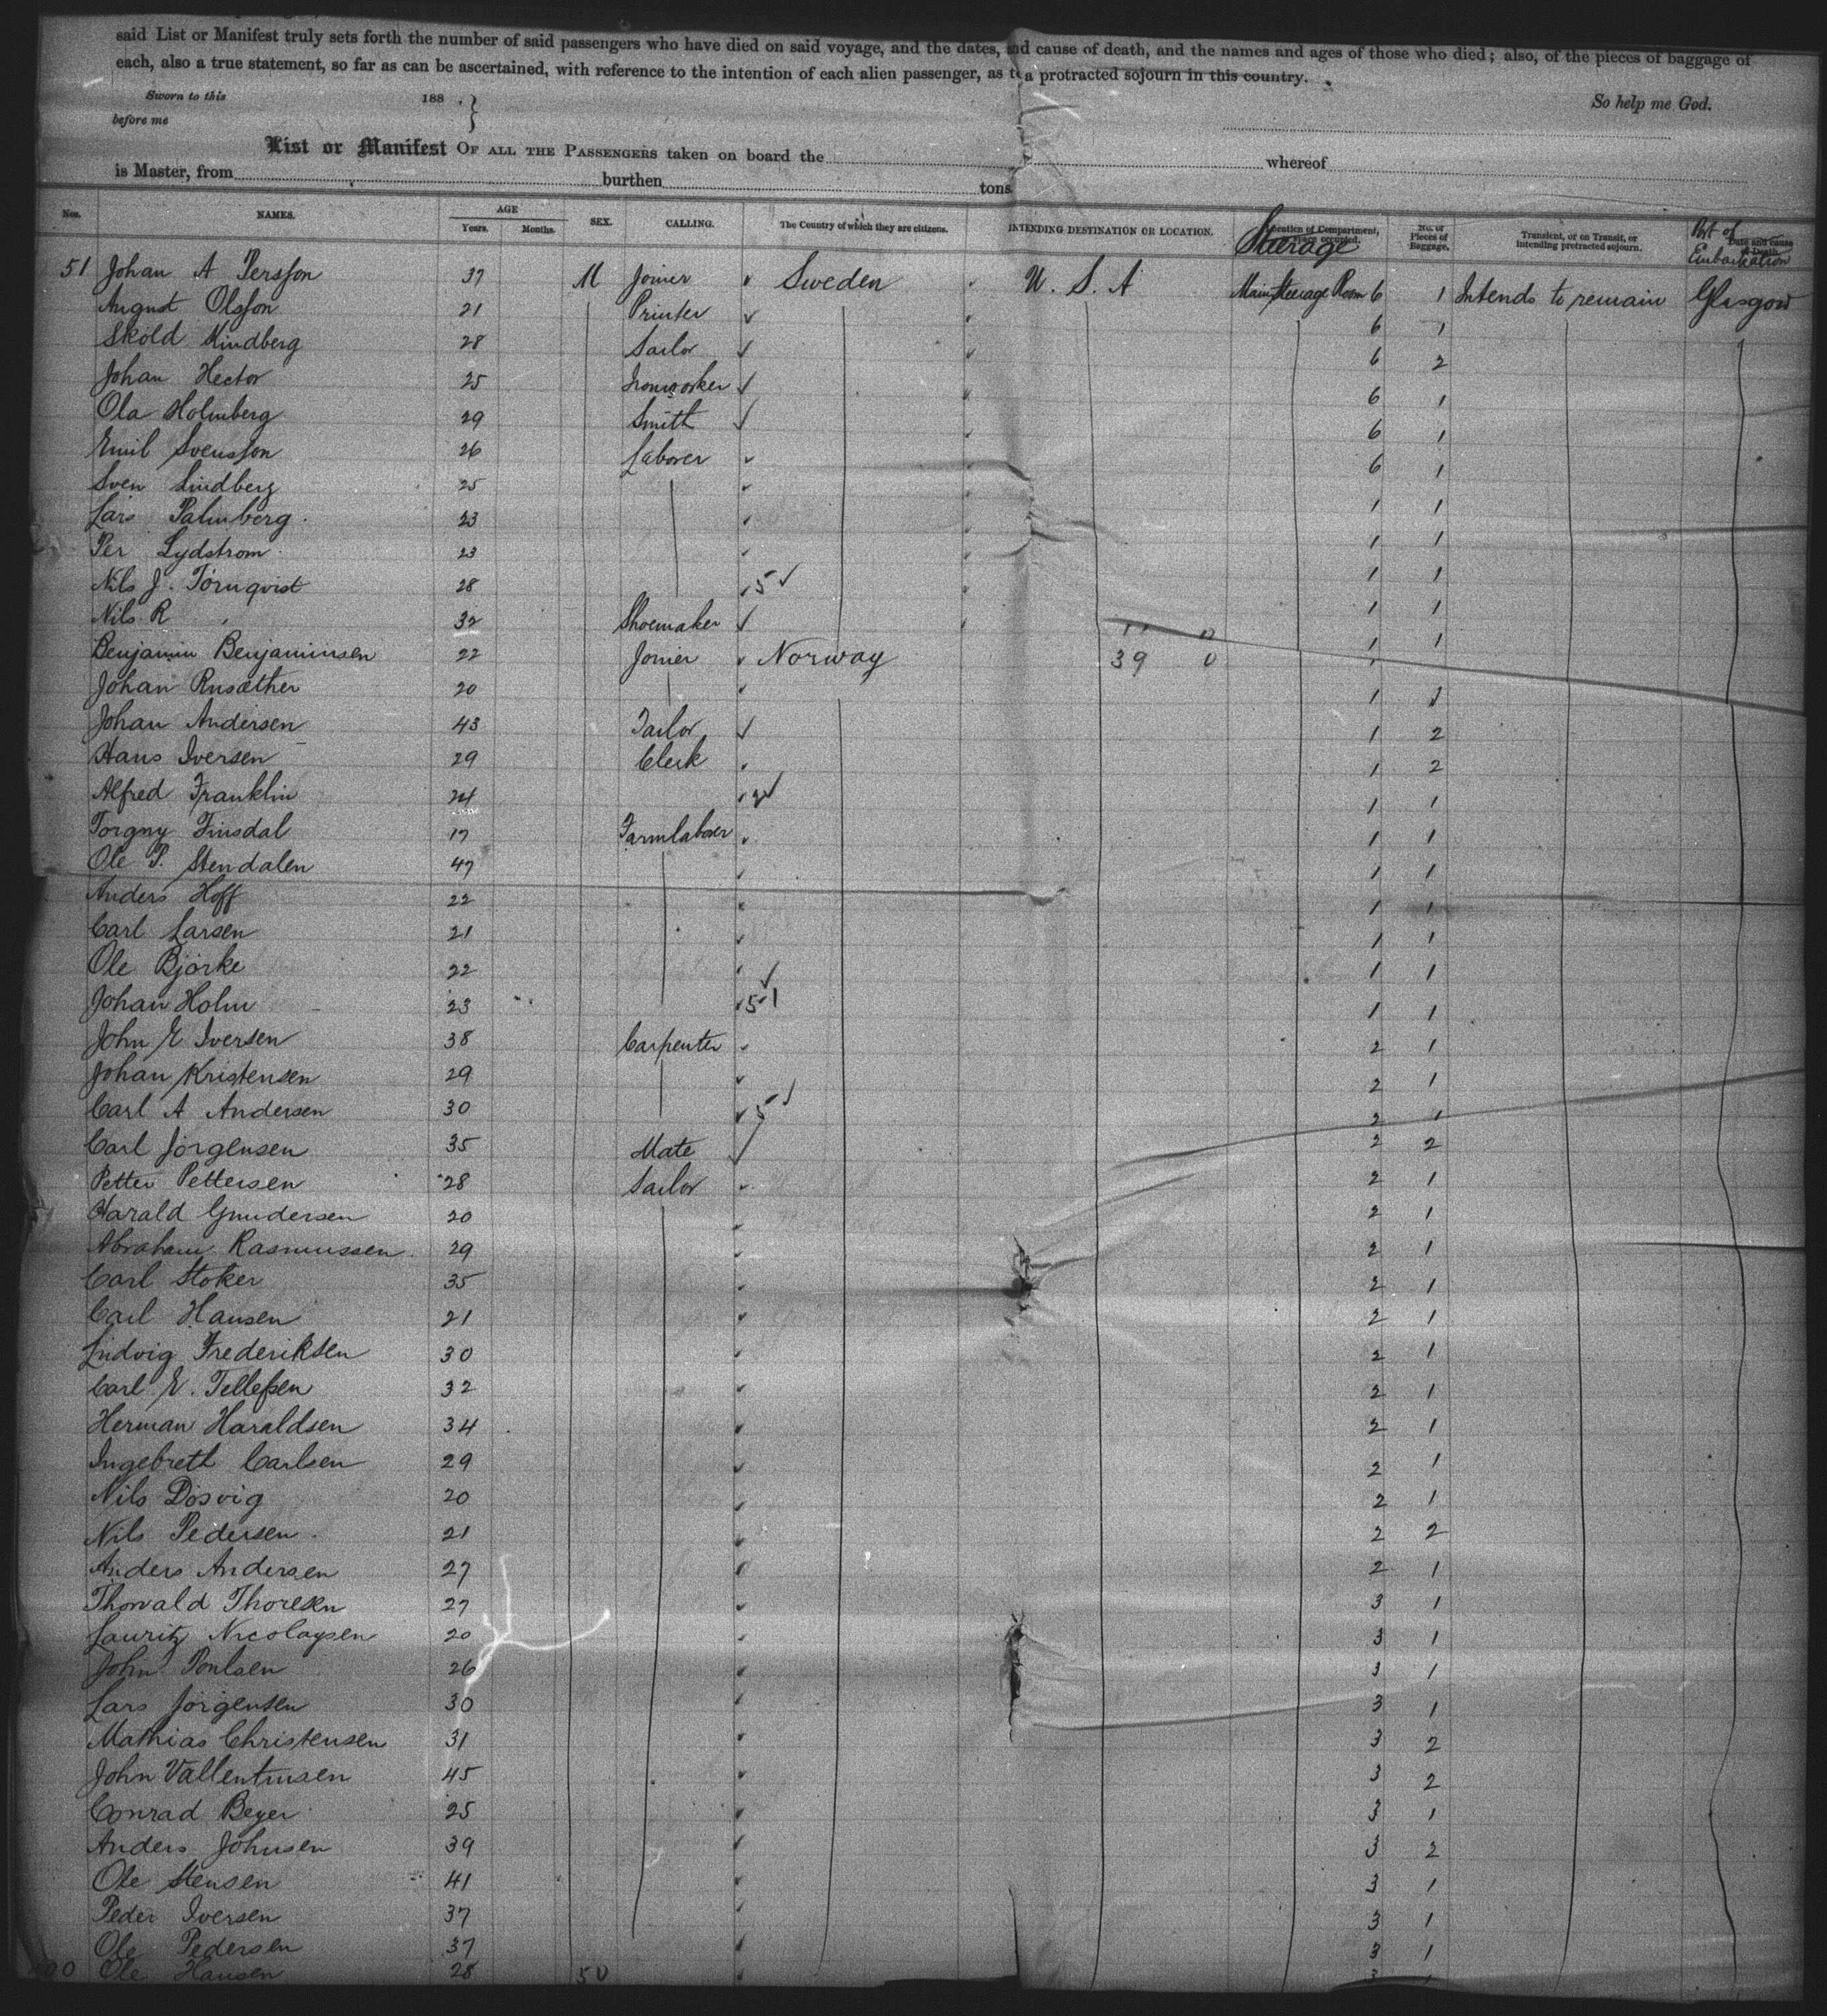 said List or Manifest truly sets forth the number of said passengers who have died on said voyage, and the dates, and cause of death, and the names and ages of those who died; also, of the pieces of baggage of
each, also a true statement, so far as can be ascertained, with reference to the intention of each alien passenger, as to a protracted sojourn in this country.
Sworn to this 188
before me
So help me God.
List or Manifest OF ALL THE PASSENGERS taken on board the whereof
is Master, from burthen tons
Nos. NAMES. AGE Years. Months. SEX. CALLING. The Country of which they are citizens. INTENDING DESTINATION OR LOCATION. Steerage No. of Pieces of Baggage. Transient, or on Transit, or intending protracted sojourn. Port of Embarkation Date and cause of Death.
51 Johan A Persson 37 M Joiner Sweden U. S. A Main Steerage Room 6 1 Intends to remain Glasgow
August Olsson 21 Printer 6 1
Skold Kindberg 28 Sailor 6 2
Johan Hector 25 Ironworker 6 1
Ola Holmberg 29 Smith 6 1
Emil Svensson 26 Laborer 6 1
Sven Lindberg 25 1 1
Lars Palmberg 23 1 1
Per Lydstrom 23 1 1
Nils J. Törnqvist 28 5 1 1
Nils R " 32 Shoemaker 1 1
Benjamin Benjaminsen 22 Joiner Norway 39 0 1
Johan Rusæther 20 1 1
Johan Andersen 43 Tailor 1 2
Hans Iversen 29 Clerk 1 2
Alfred Franklin 24 2 1 1
Torgny Finsdal 17 Farmlaborer 1 1
Ole P. Stendalen 47 1 1
Anders Hoff 22 1 1
Carl Larsen 21 1 1
Ole Bjorke 22 1 1
Johan Holm 23 5 1 1
John E Iversen 38 Carpenter 2 1
Johan Kristensen 29 2 1
Carl A Andersen 30 5 2 1
Carl Jörgensen 35 Mate 2 2
Petter Pettersen 28 Sailor 2 1
Harald Gundersen 20 2 1
Abraham Rasmussen 29 2 1
Carl Stoker 35 2 1
Carl Hansen 21 2 1
Ludvig Frederiksen 30 2 1
Carl E. Tellefsen 32 2 1
Herman Haraldsen 34 2 1
Ingebreth Carlsen 29 2 1
Nils Dösvig 20 2 1
Nils Pedersen 21 2 2
Anders Andersen 27 2 1
Thorvald Thoresen 27 3 1
Lauritz Nicolaysen 20 3 1
John Poulsen 26 3 1
Lars Jörgensen 30 3 1
Mathias Christensen 31 3 2
John Vallentinsen 45 3 2
Conrad Beyer 25 3 1
Anders Johnsen 39 3 2
Ole Stensen 41 3 1
Peder Iversen 37 3 1
Ole Pedersen 37 3 1
Ole Hansen 28 50 3